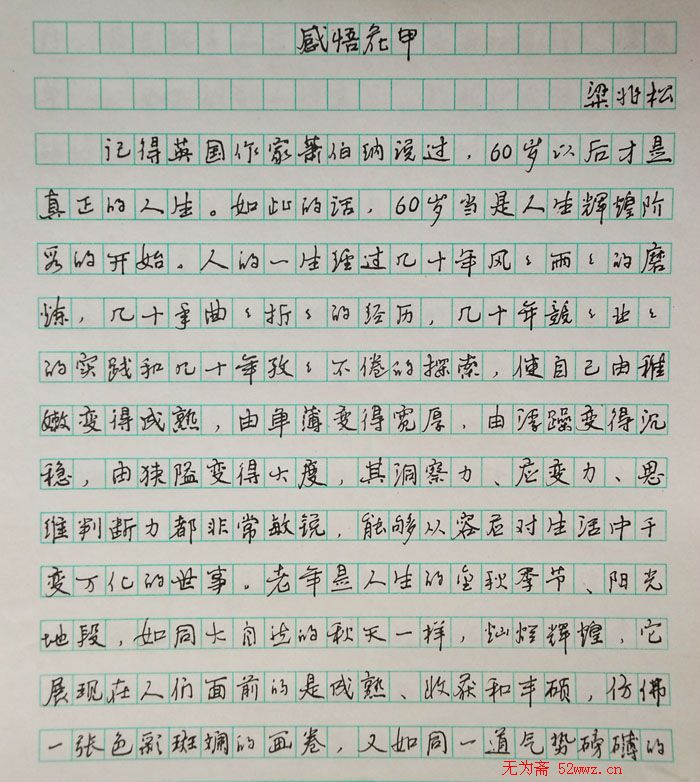 感悟花甲
梁兆松
记得英国作家萧伯纳说过，60岁以后才是
真正的人生。如此的话，60岁当是人生辉煌阶
段的开始。人的一生经过几十年风〻雨〻的磨
炼，几十年曲〻折〻的经历，几十年兢〻业〻
的实践和几十年孜〻不倦的探索，使自己由稚
嫩变得成熟，由单薄变得宽厚，由浮躁变得沉
稳，由狭隘变得大度，其洞察力、应变力、思
维判断力都非常敏锐，能够从容应对生活中千
变万化的世事。老年是人生的金秋季节、阳光
地段，如同大自然的秋天一样，灿烂辉煌，它
展现在人们面前的是成熟、收获和丰硕，仿佛
一张色彩斑斓的画卷，又如同一道气势磅礴的
无为斋 52wwz.cn